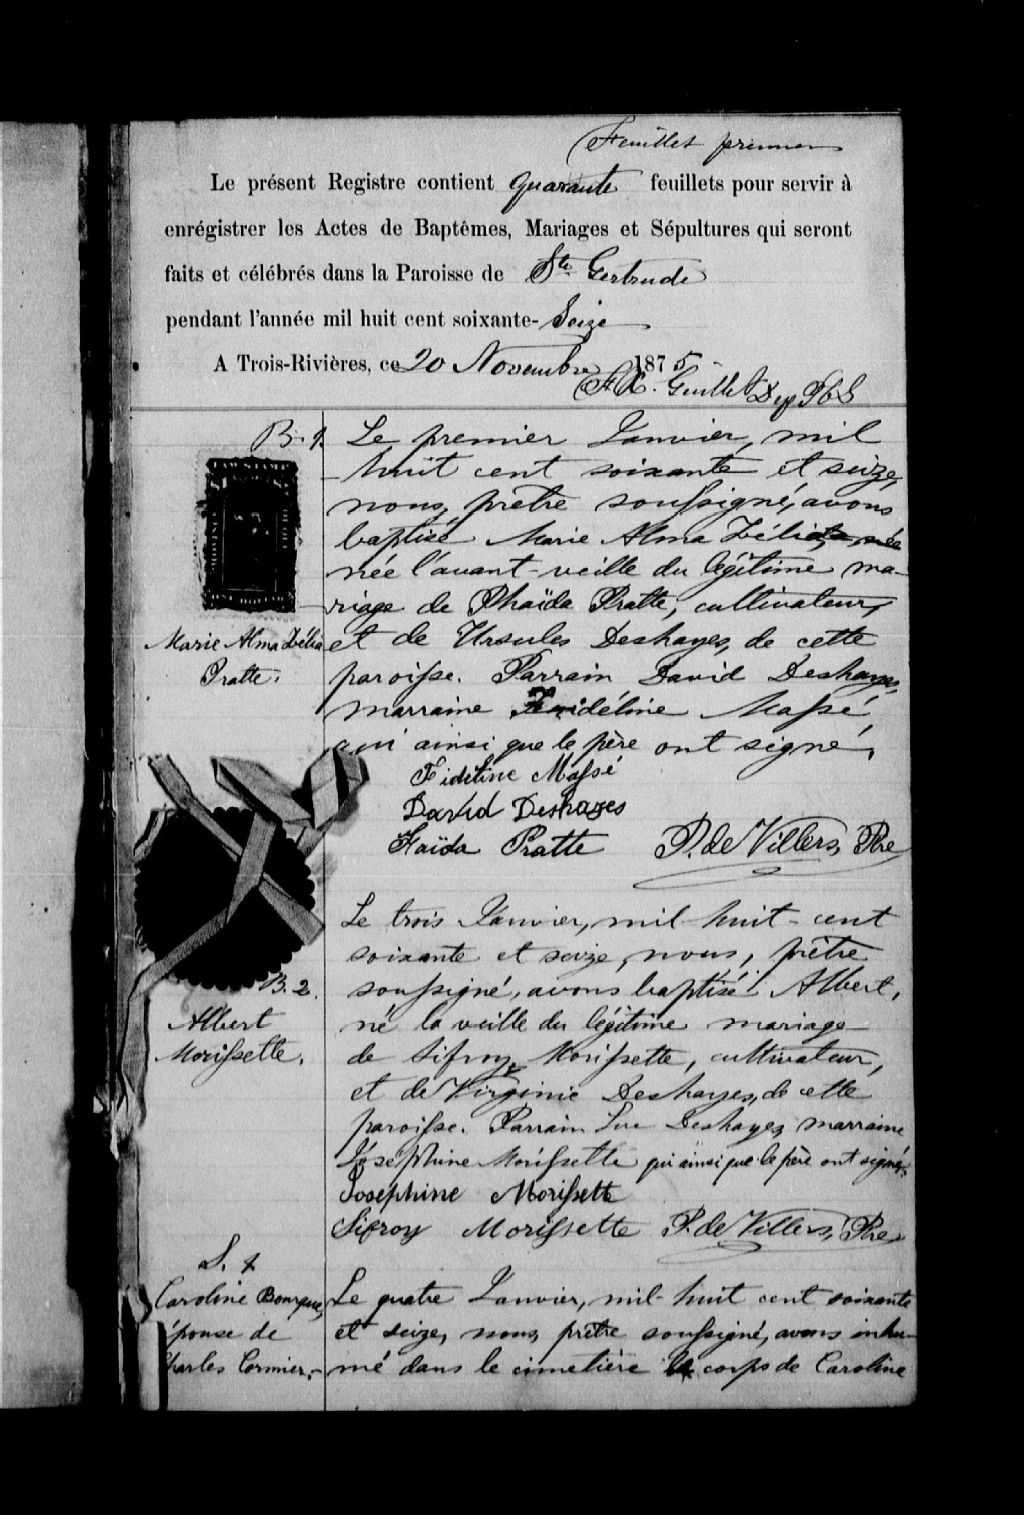 Feuillet premier
Le présent Registre contient quarante feuillets pour servir à
enrégistrer les Actes de Baptêmes, Mariages et Sépultures qui seront
faits et célébrés dans la Paroisse de Ste Gertrude
pendant l'année mil huit cent soixante-Seize
A Trois-Rivières, ce 20 Novembre 1875
B. 1. Le premier Janvier, mil
huit cent soixante et seize,
nous, prêtre soussigné, avons
baptisé Marie Alma Zélia
née l'avant-veille du légitime ma-
riage de Phaïda Pratte, cultivateur,
Marie Alma Zélia et de Ursules Deshayes, de cette
Pratte. paroisse. Parrain David Deshayes,
marraine Fidéline Massé,
qui ainsi que le père ont signé.
Fideline Massé
David Deshayes
Faïda Pratte P. de Villers, Ptre
Le trois Janvier, mil-huit-cent
soixante et seize, nous, prêtre
B. 2. soussigné, avons baptisé Albert,
Albert né la veille du légitime mariage
Morissette. de Sifroy Morissette, cultivateur,
et de Virginie Deshayes, de cette
paroisse. Parrain Luc Deshayes, marraine
Joséphine Morissette qui ainsi que le père ont signé.
Josephine Morissette
Sifroy Morissette P. de Villers, Ptre
S. 1
Caroline Bourque, Le quatre Janvier, mil-huit cent soixante
épouse de et seize, nous, prêtre soussigné, avons inhu-
Charles Cormier.- mé dans le cimetière le corps de Caroline